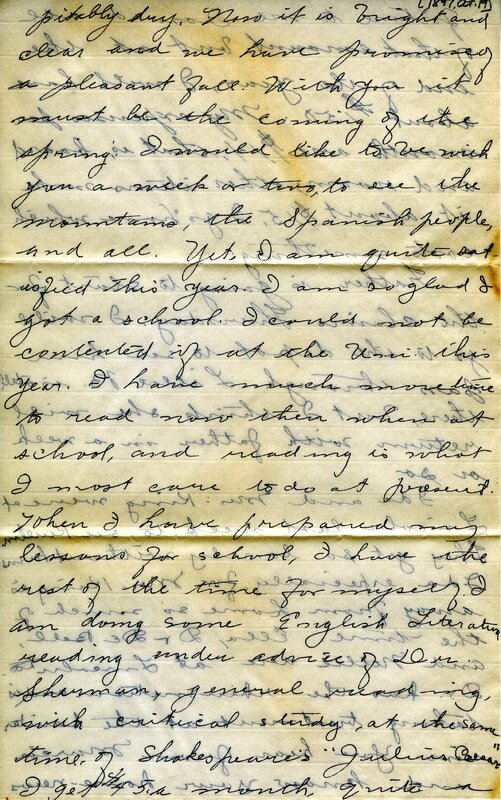 (1897, at. 19)
pitably dry. Now it is bright and
clear and we have promise of
a pleasant fall. With you it
must be the coming of the
spring. I would like to be with
you a week or two, to see the
mountains, the Spanish people,
and all. Yet, I am quite sat
isfied this year. I am so glad I
got a school. I could not be
contented if at the Uni. this
year. I have much more time
to read now then when at
school, and reading is what
I most care to do at present.
When I have prepared my
lessons for school, I have the
rest of the time for myself. I
am doing some English Literature
reading under advice of Dr.
Sherman, general reading,
with critical study, at the same
time, of Shakespeare's "Julius Caesar"
I get $45. a month, quite a